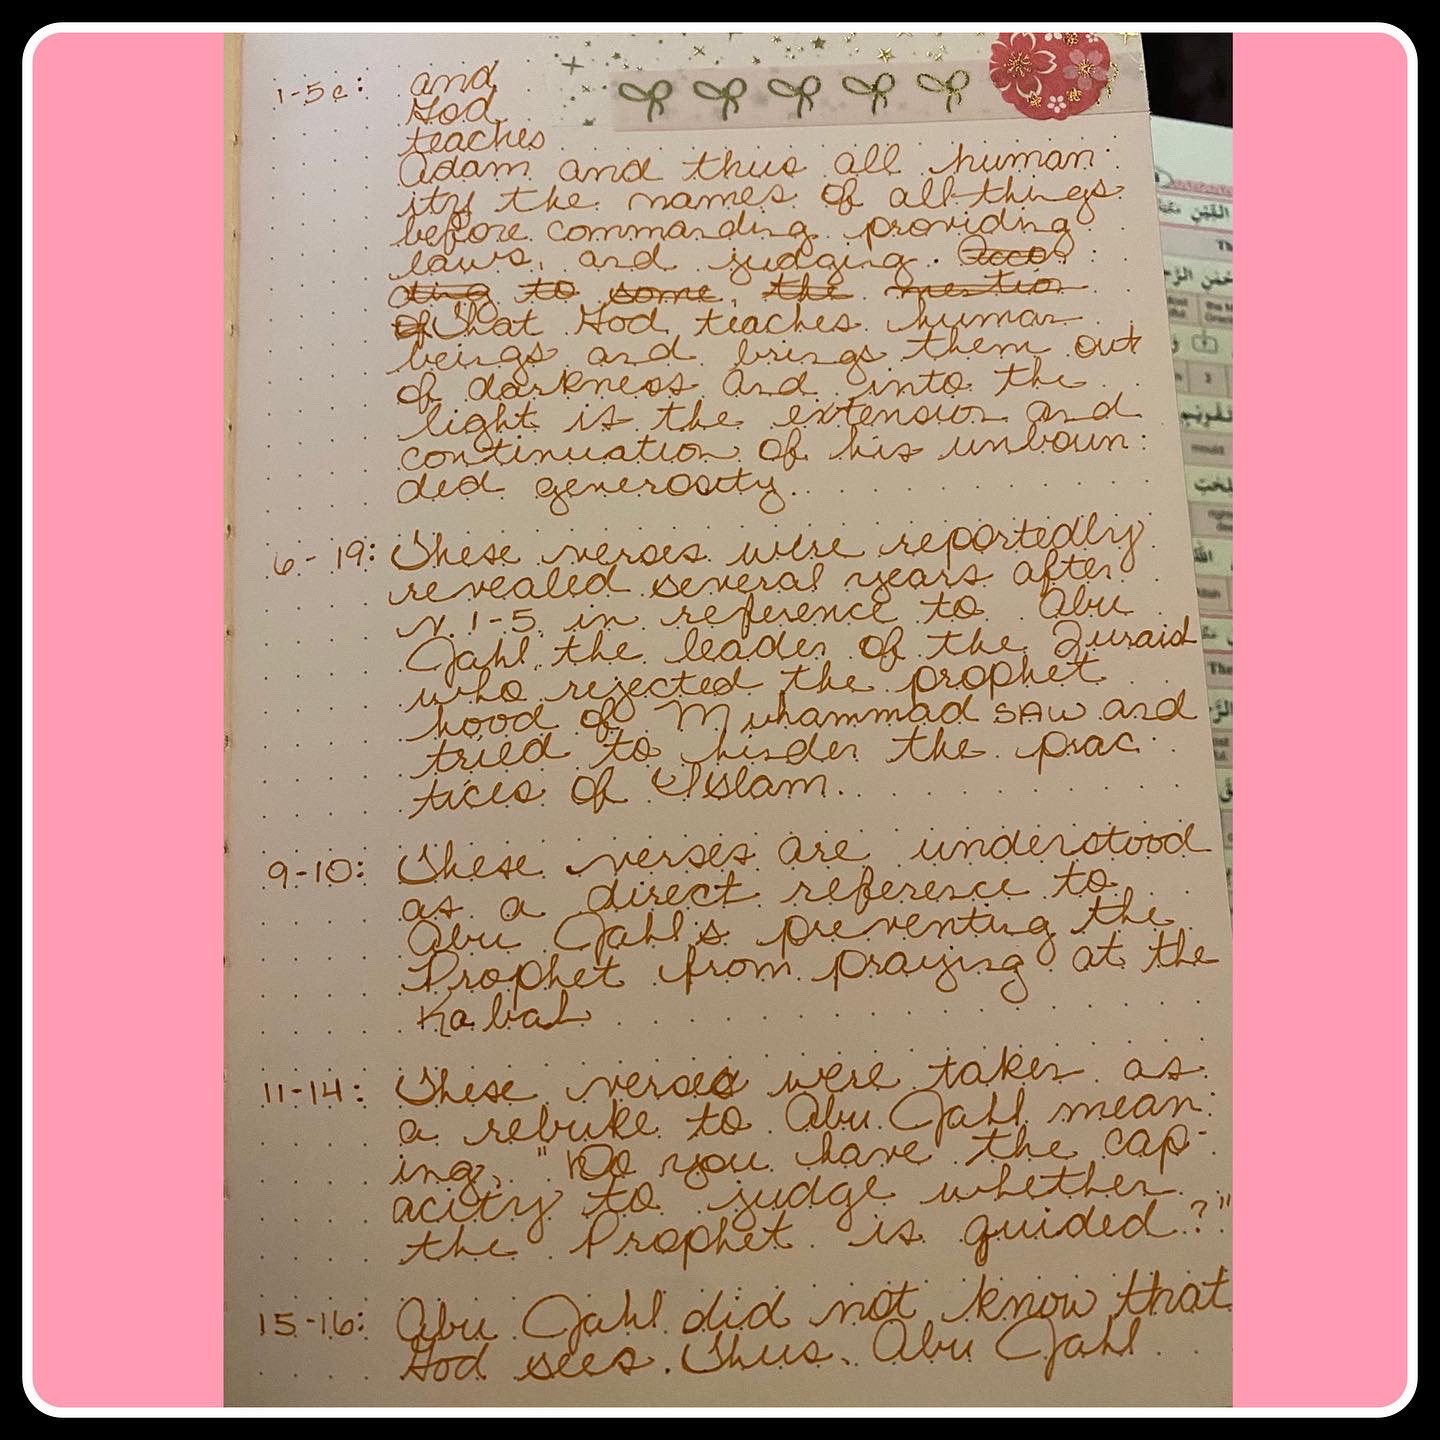 1-5c: and
God
teaches
Adam and thus all human
ity the names of all things
before commanding, providing
laws, and judging. Acco
ding to some, the mention
of That God teaches human
beings and brings them out
of darkness and into the
light is the extension and
continuation of his unboun
ded generosity.
6-19: These verses were reportedly
revealed several years after
v. 1-5 in reference to Abu
Jahl, the leader of the Quraish
who rejected the prophet
hood of Muhammad SAW and
tried to hinder the prac
tices of Islam.
9-10: These verses are understood
as a direct reference to
Abu Jahl's preventing the
Prophet from praying at the
Kabah
11-14: These verses were taken as
a rebuke to Abu Jahl mean
ing, "Do you have the cap-
acity to judge whether
the Prophet is guided?"
15-16: Abu Jahl did not know that
God sees. Thus, Abu Jahl